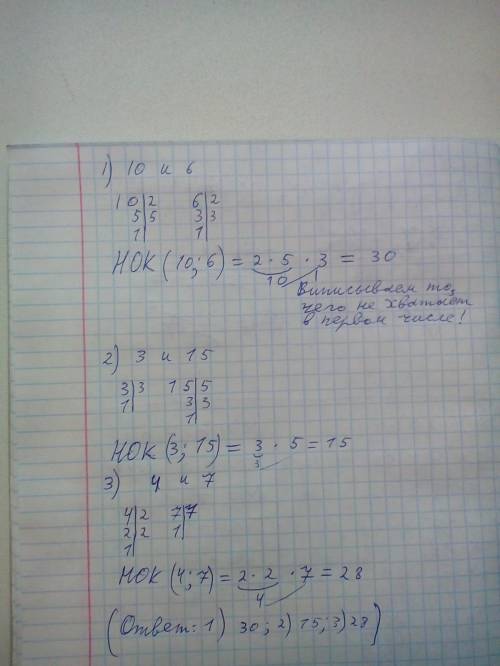 1) 10 и 6
10|2 6|2
5|5 3|3
1| 1|
НОК (10; 6) = 2 · 5 · 3 = 30
10
Выписываем то,
чего не хватает
в первом числе!
2) 3 и 15
3|3 15|5
1| 3|3
1|
НОК (3; 15) = 3 · 5 = 15
3
3) 4 и 7
4|2 7|7
2|2 1|
1|
НОК (4; 7) = 2 · 2 · 7 = 28
4
(Ответ: 1) 30; 2) 15; 3) 28)